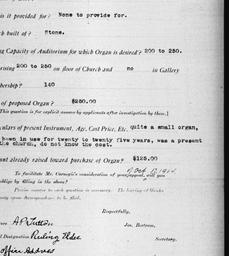 is it provided for? None to provide for.
ch built of? Stone.
ng Capacity of Auditorium for which Organ is desired? 200 to 250.
rning 200 to 250 on floor of Church and no in Gallery
bership? 140
of proposed Organ? $250.00
(This question is for explicit answer by applicants after investigation by them.)
culars of present Instrument, Age, Cost Price, Etc. quite a small organ,
been in use for twenty to twenty five years, was a present
the church, do not know the cost.
unt already raised toward purchase of Organ? $125.00
To facilitate Mr. Carnegie's consideration of your appeal, will you
oblige by filling in the above?
Respectfully,
Jas. Bertram,
Secretary.
Designation Ruling Elder
Office Address